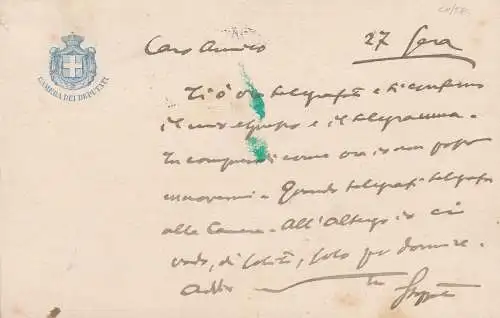 CAMERA DEI DEPUTATI
Caro Amico
27 Sera
Ti ò ora telegrafato e ti confermo
il mio espresso e il telegramma.
Tu comprendi come ora io non possa
muovermi. Quando telegrafi telegrafa
alla Camera. All'Albergo io ci
vado, di solito, solo per dormire.
Addio
tuo